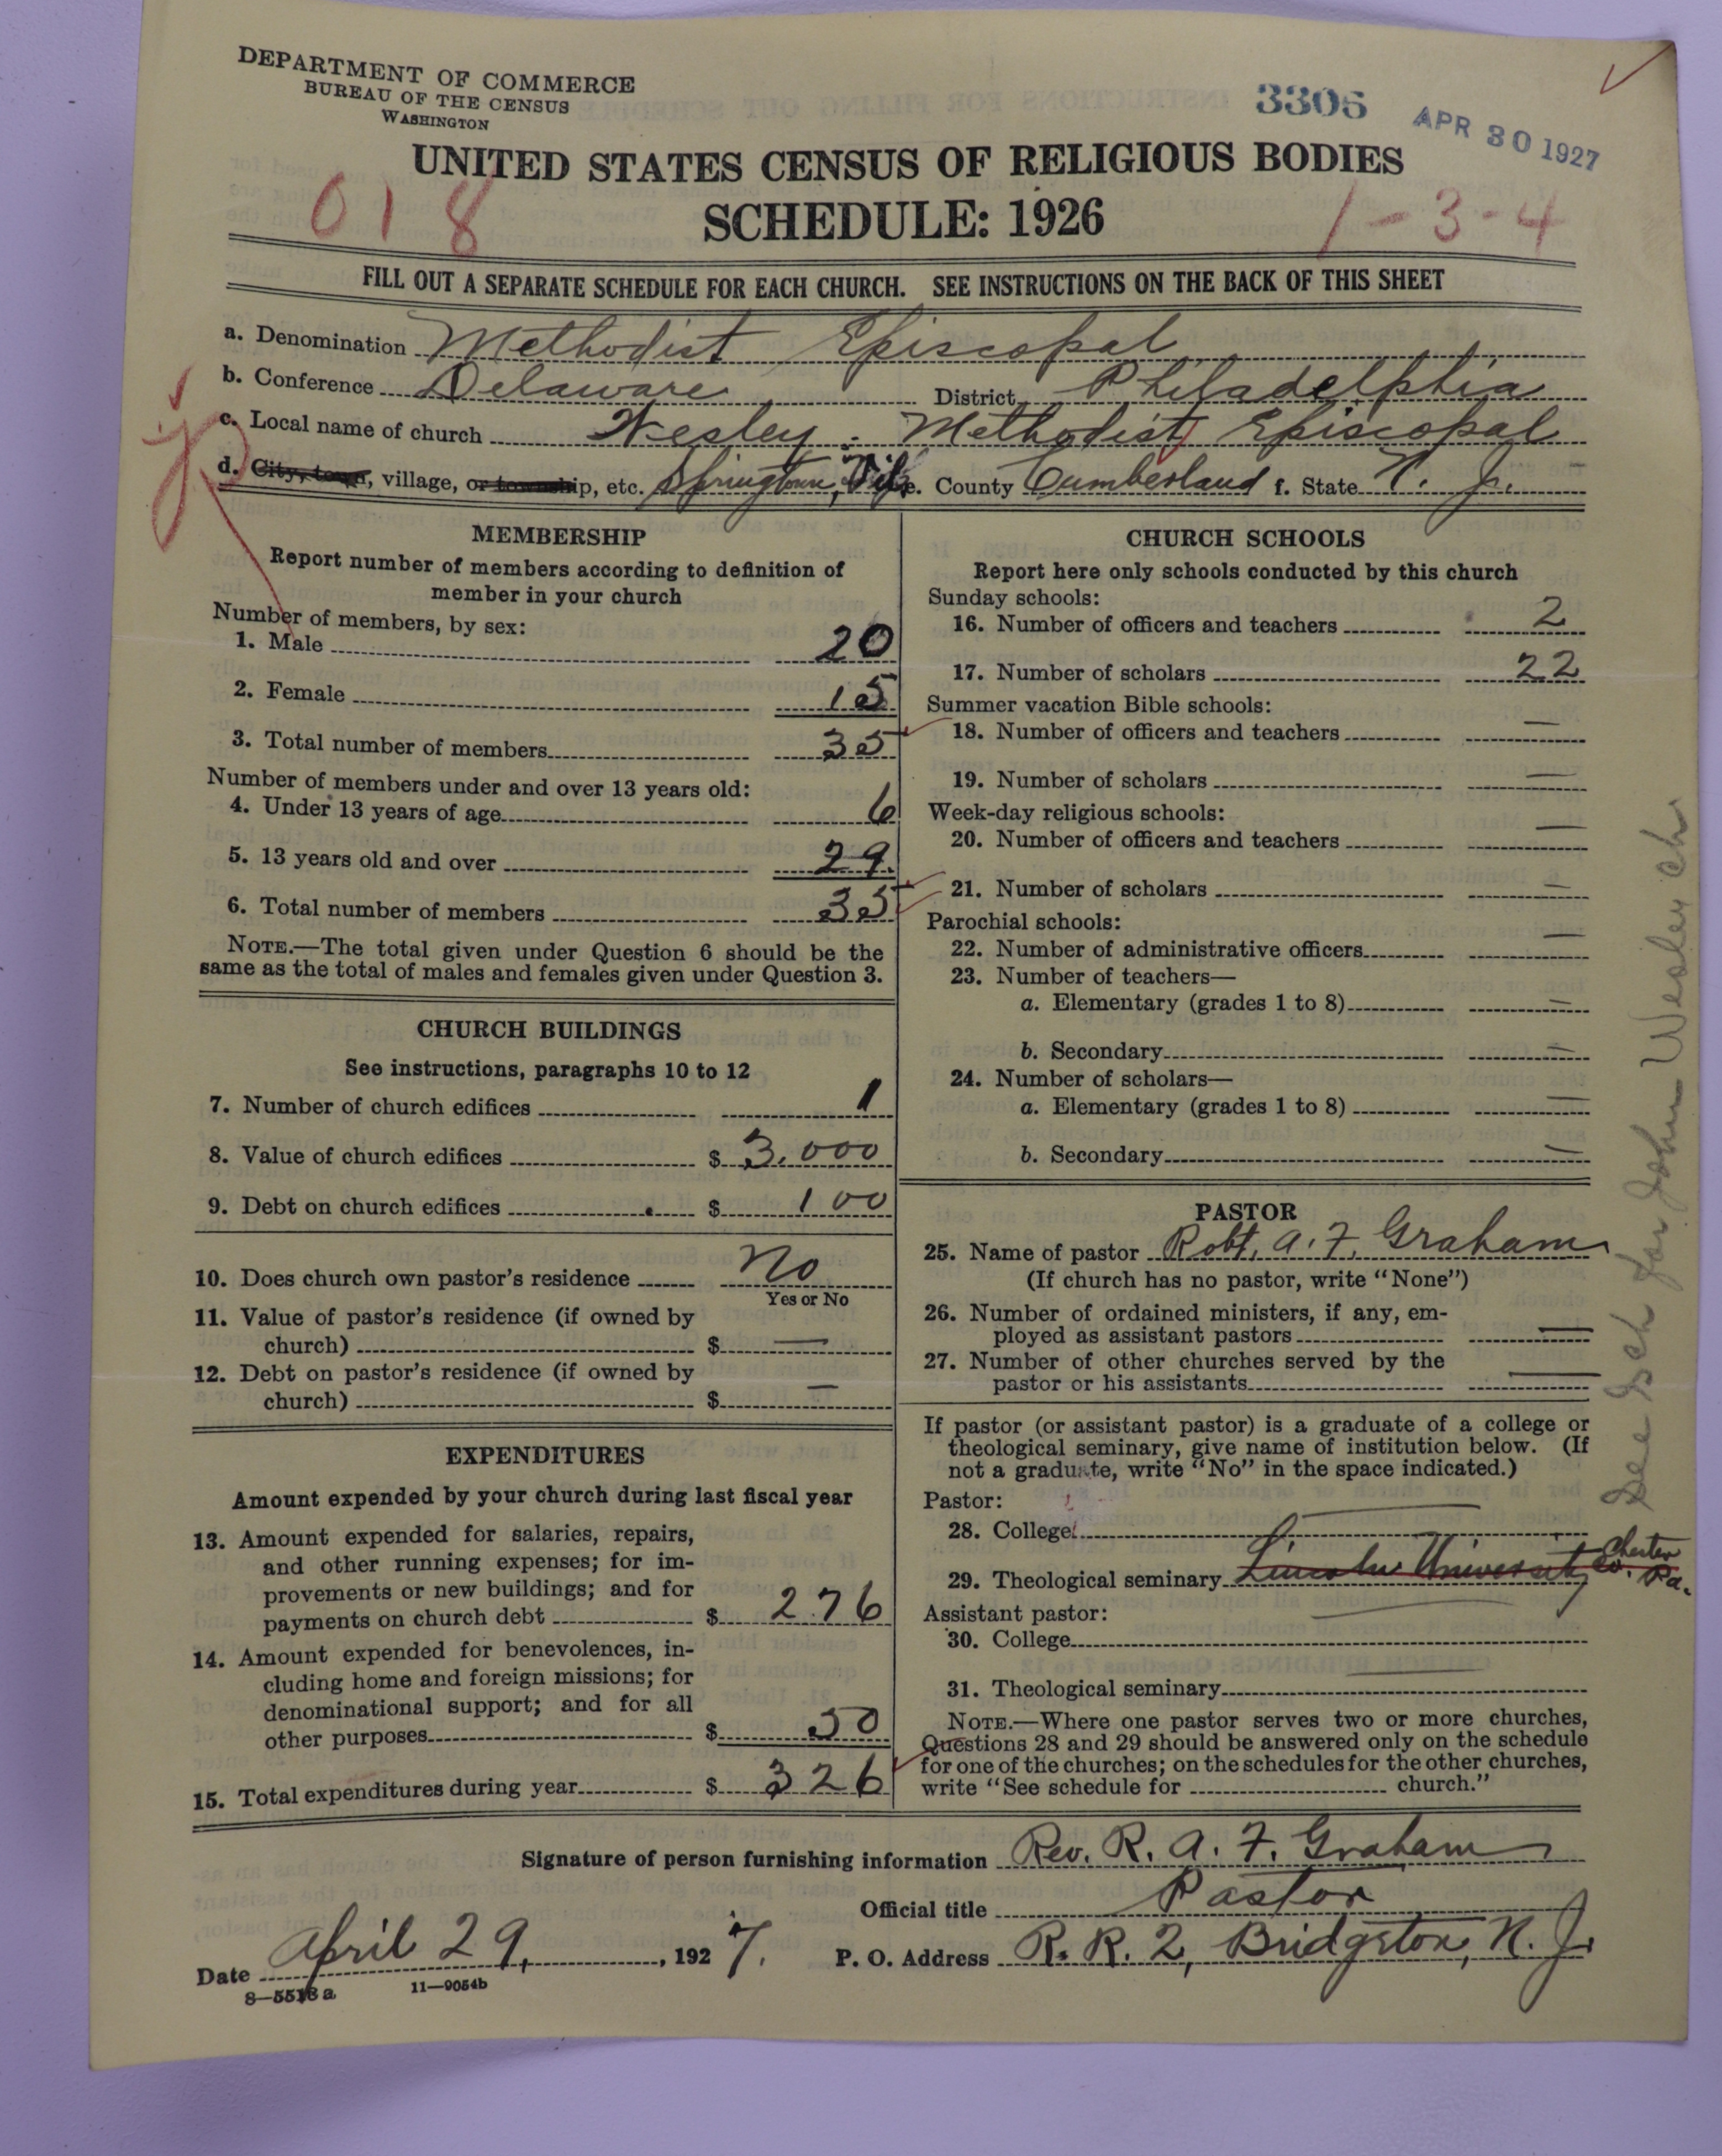 DEPARTMENT OF COMMERCE
BUREAU OF THE CENSUS
WASHINGTON
3306
APR 30 1927
UNITED STATES CENSUS OF RELIGIOUS BODIES
SCHEDULE: 1926
018
1-3-4
FILL OUT A SEPARATE SCHEDULE FOR EACH CHURCH. SEE INSTRUCTIONS ON THE BACK OF THIS SHEET
a. Denomination Methodist Episcopal
b. Conference Delaware District Philadelphia
c. Local name of church Wesley Methodist Episcopal
d. City, town, village, or township, etc. Springtown, e. County Cumberland f. State N. J.
MEMBERSHIP
Report number of members according to definition of
member in your church
Number of members, by sex:
1. Male 20
2. Female 15
3. Total number of members 35
Number of members under and over 13 years old:
4. Under 13 years of age 6
5. 13 years old and over 29.
6. Total number of members 35
NOTE.—The total given under Question 6 should be the
same as the total of males and females given under Question 3.
CHURCH BUILDINGS
See instructions, paragraphs 10 to 12
7. Number of church edifices 1
8. Value of church edifices $ 3,000
9. Debt on church edifices $ 100
10. Does church own pastor's residence No
Yes or No
11. Value of pastor's residence (if owned by
church) $ —
12. Debt on pastor's residence (if owned by
church) $ —
EXPENDITURES
Amount expended by your church during last fiscal year
13. Amount expended for salaries, repairs,
and other running expenses; for im-
provements or new buildings; and for
payments on church debt $ 276
14. Amount expended for benevolences, in-
cluding home and foreign missions; for
denominational support; and for all
other purposes $ 50
15. Total expenditures during year $ 326
CHURCH SCHOOLS
Report here only schools conducted by this church
Sunday schools:
16. Number of officers and teachers 2
17. Number of scholars 22
Summer vacation Bible schools:
18. Number of officers and teachers —
19. Number of scholars —
Week-day religious schools:
20. Number of officers and teachers —
21. Number of scholars —
Parochial schools:
22. Number of administrative officers —
23. Number of teachers—
a. Elementary (grades 1 to 8) —
b. Secondary —
24. Number of scholars—
a. Elementary (grades 1 to 8) —
b. Secondary —
PASTOR
25. Name of pastor Robt. A. F. Graham
(If church has no pastor, write "None")
26. Number of ordained ministers, if any, em-
ployed as assistant pastors —
27. Number of other churches served by the
pastor or his assistants —
If pastor (or assistant pastor) is a graduate of a college or
theological seminary, give name of institution below. (If
not a graduate, write "No" in the space indicated.)
Pastor:
28. College —
29. Theological seminary Lincoln University Chester Co. Pa.
Assistant pastor:
30. College —
31. Theological seminary —
NOTE.—Where one pastor serves two or more churches,
Questions 28 and 29 should be answered only on the schedule
for one of the churches; on the schedules for the other churches,
write "See schedule for church."
See Sch for John Wesley ch
Signature of person furnishing information Rev. R. A. F. Graham
Official title Pastor
Date April 29, 1927. P. O. Address R. R. 2, Bridgeton, N. J.
8—5513a 11—9054b